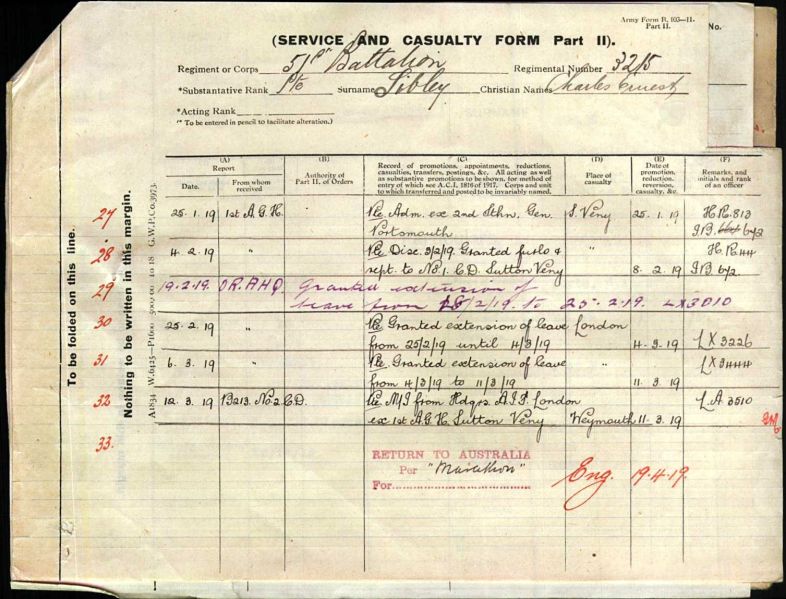 Army Form B. 103—II.
Part II.
No.
(SERVICE AND CASUALTY FORM Part II).
Regiment or Corps 51st Battalion Regimental Number 3215
*Substantive Rank Pte Surname Sibley Christian Names Charles Ernest
*Acting Rank
(* To be entered in pencil to facilitate alteration.)
To be folded on this line.
Nothing to be written in this margin.
(A) (B) (C) (D) (E) (F)
Report
Date. From whom received
Authority of Part II. of Orders
Record of promotions, appointments, reductions, casualties, transfers, postings, &c. All acting as well as substantive promotions to be shown, for method of entry of which see A.C.I. 1816 of 1917. Corps and unit to which transferred and posted to be invariably named.
Place of casualty
Date of promotion, reduction, reversion, casualty, &c.
Remarks, and initials and rank of an officer
27 25.1.19 1st A.G.H. Adm. ex 2nd Sthn. Gen. S. Veny 25.1.19 H.R. 813
Portsmouth 642
28 4.2.19 " Disc. 3/2/19. Granted furlo & " H.R 44
rept. to No 1. C.D. Sutton Veny 8.2.19
29 19.2.19. Granted extension of
leave from /2/19. to 25.2.19. LX3010
30 25.2.19 " Granted extension of leave London
from 25/2/19 until 4/3/19 4.3.19 LX3226
31 6.3.19 " Granted extension of leave LX3444
from 4/3/19 to 11/3/19 11.3.19
32 12.3.19 B213. No 2 C.D. M/I from Hdqrs A.I.F. London L.A 3510
ex 1st A.G.H. Sutton Veny Weymouth 11.3.19
33.
RETURN TO AUSTRALIA
Per "Marathon" Eng. 19.4.19.
For